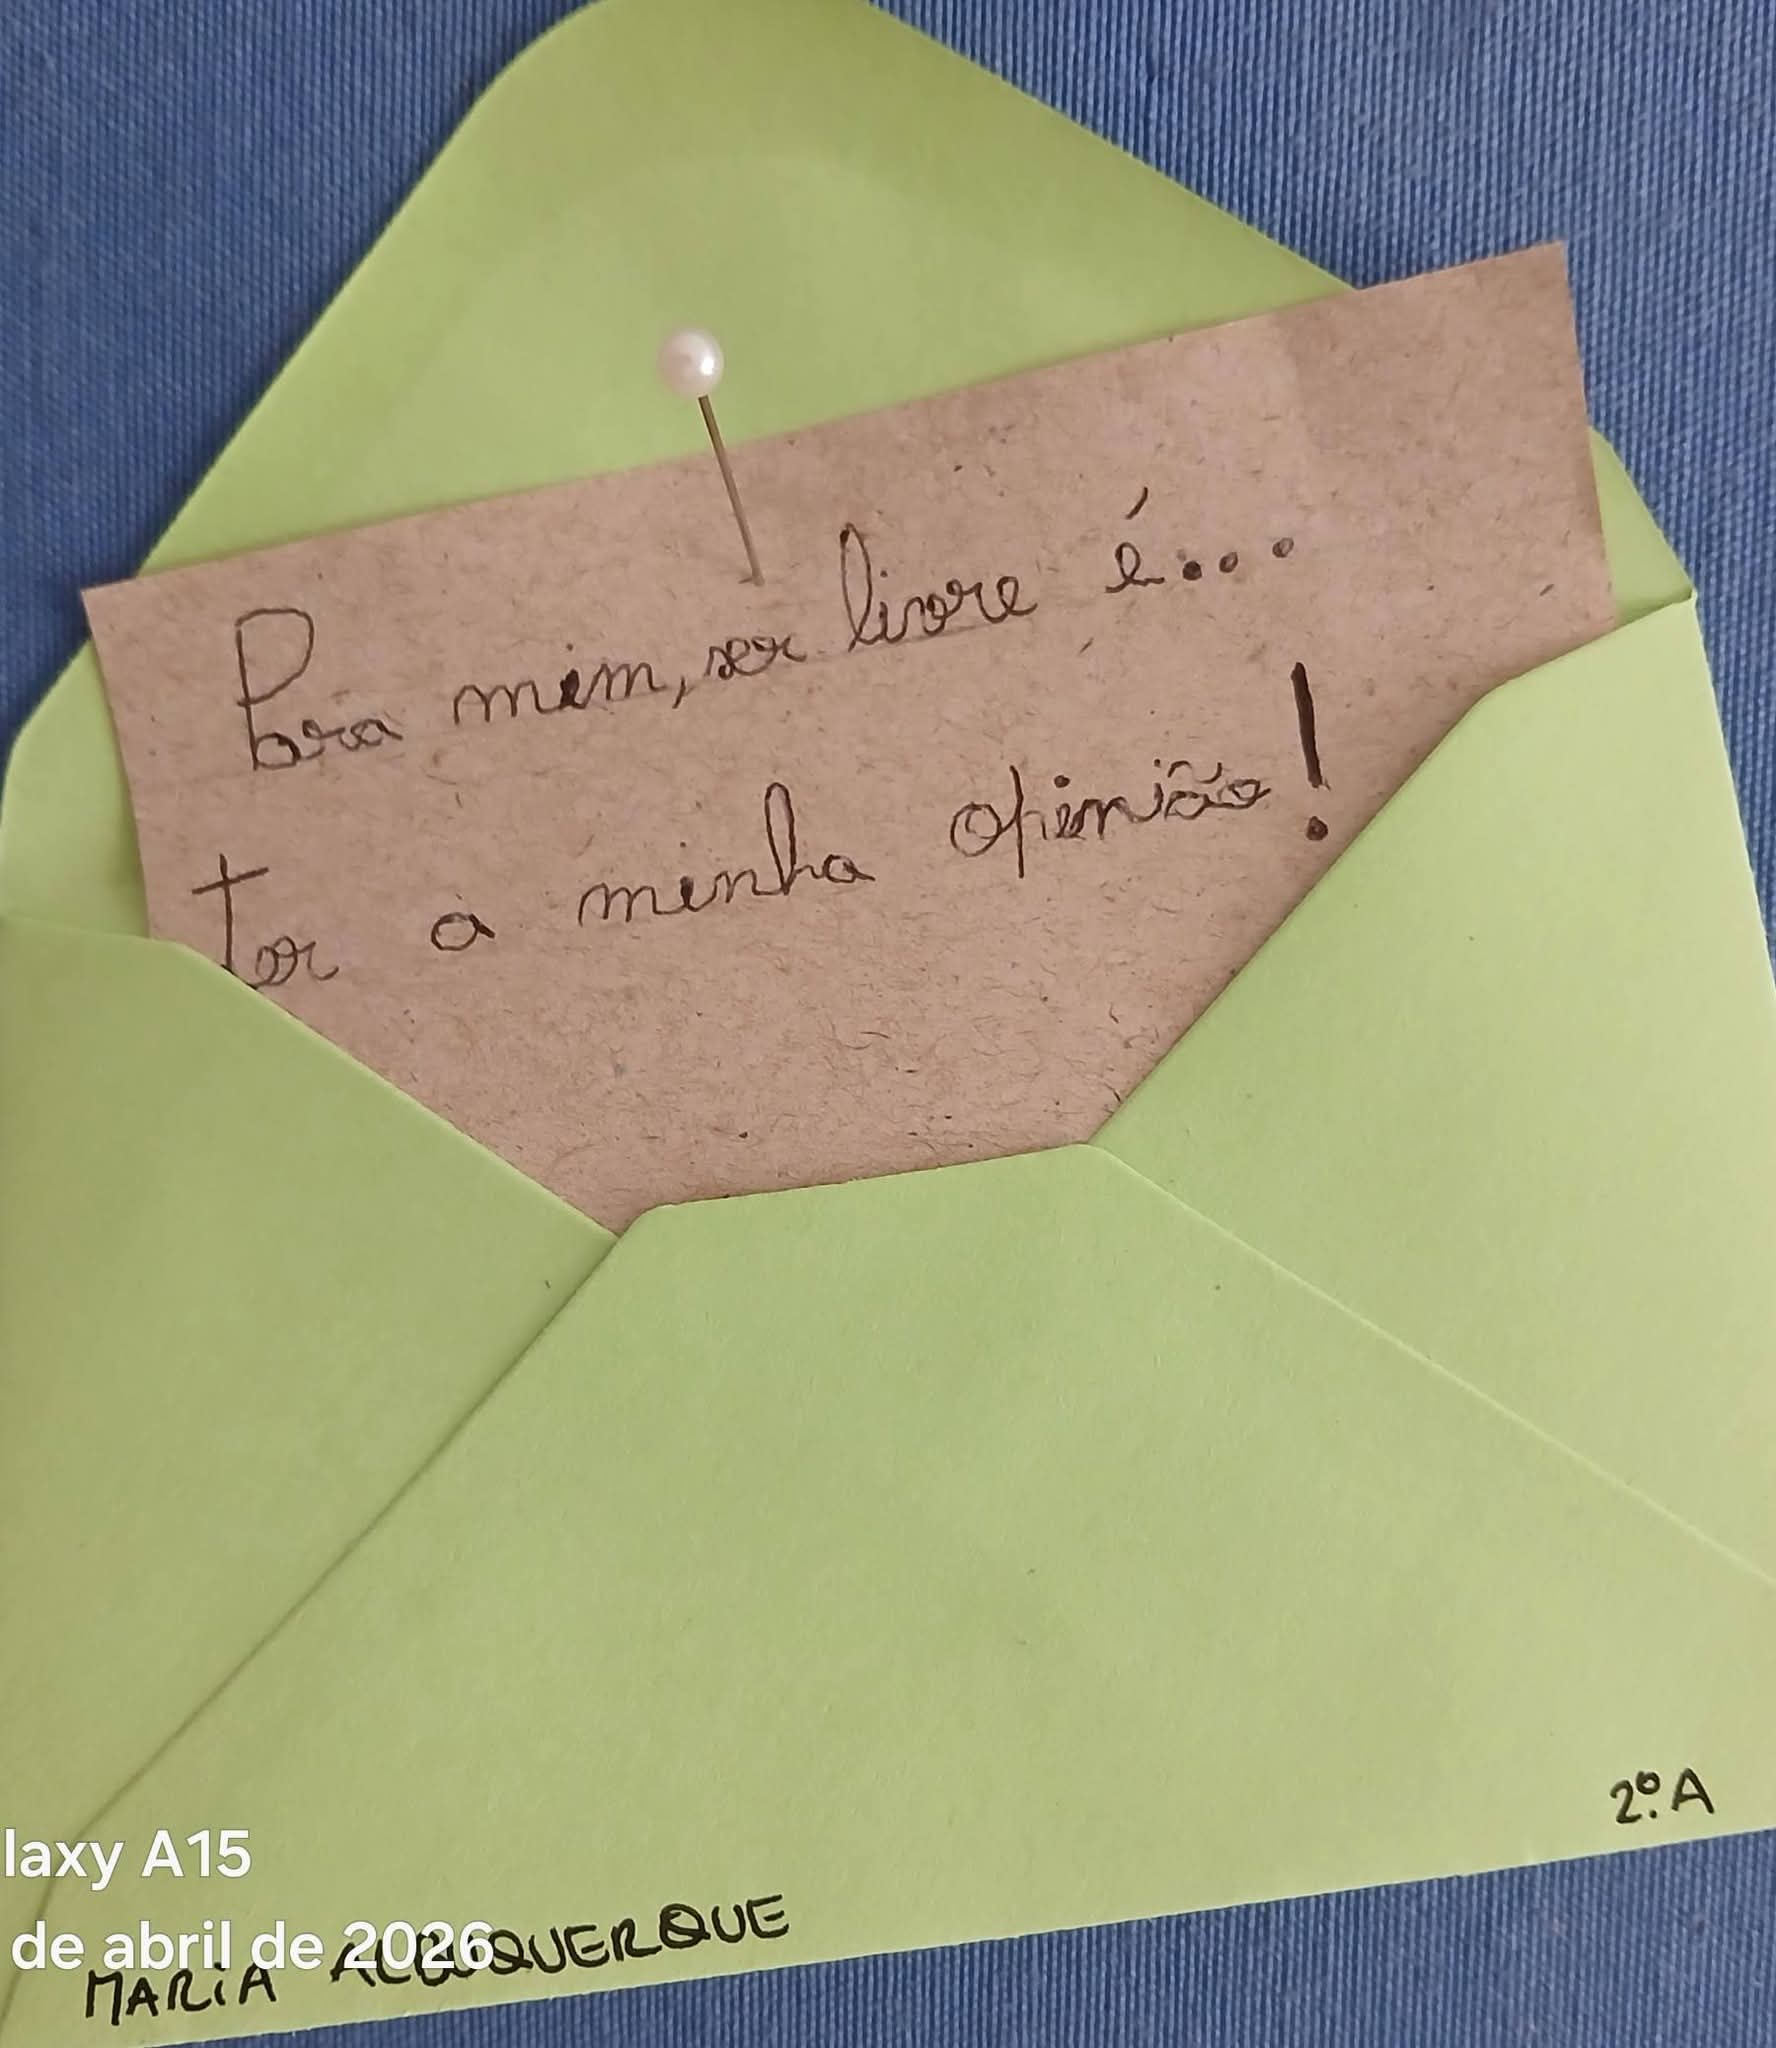 Para mim, ser livre é...
ter a minha opinião!
2º.A
laxy A15
de abril de 2026
MARIA ALBUQUERQUE